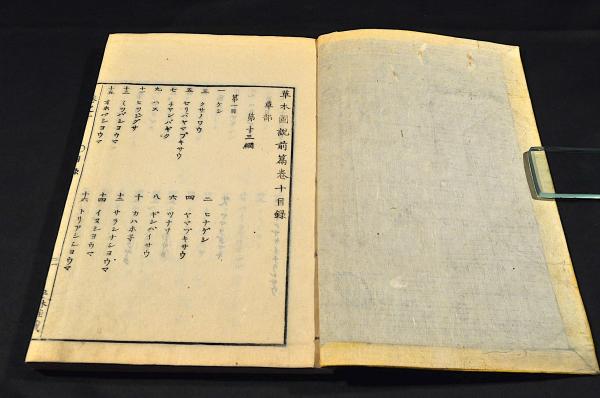 草木圖説前篇卷十目録
草部
第十三綱
第一目
一 ケシ
二 ヒナゲシ
三 クサノワウ
四 ヤマブキサウ
五 セリバヤマブキサウ
六 ツナソ
七 チャンパギク
八 ギンバイサウ
九 ハス
十 カハホネ
十一 ヒツジグサ
十二 サラシナシヨウマ
十三 ミツバシヨウマ
十四 イヌシヨウマ
十五 オホバシヨウマ
十六 トリアシシヨウマ